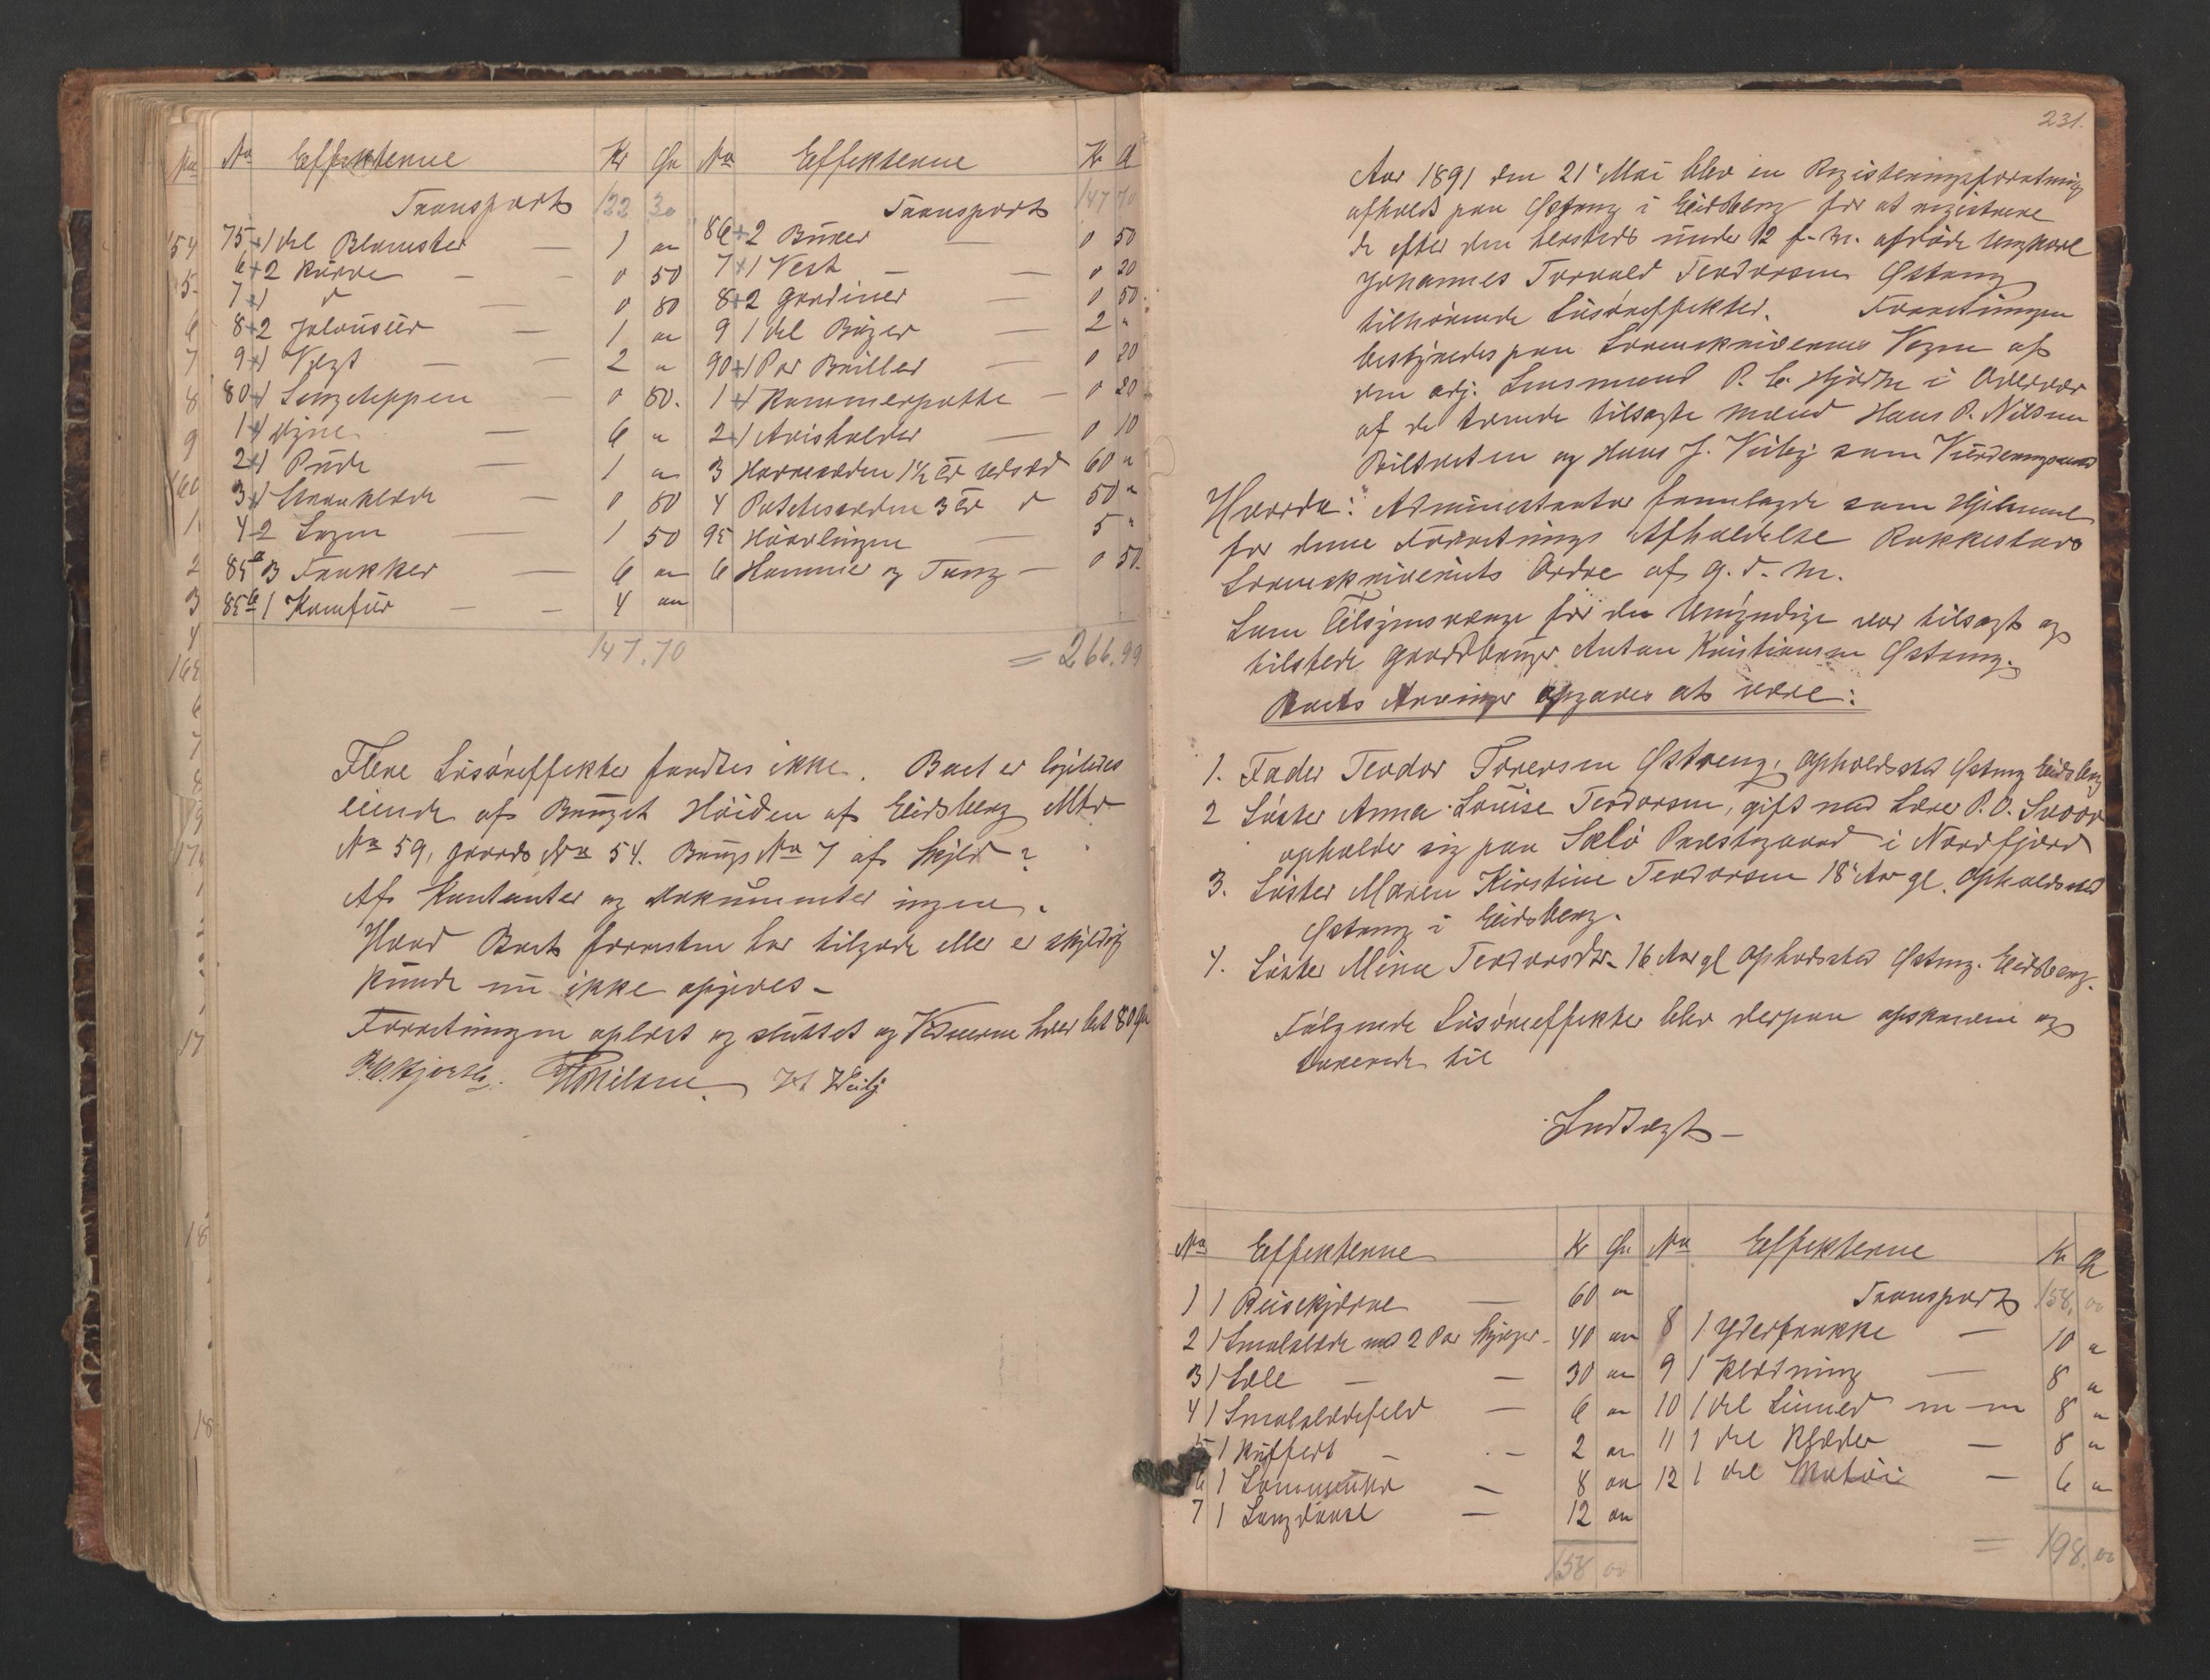 No Effekterne Kr Ør No Effekterne Kr Ø
Transport 122 30 Transport 147 70
75 1 del Blomster — 1 "
6 2 Kurve — 0 50
7 1 d — 0 80
8 2 Jalousier — 1 "
9 1 Vægt — 2 "
80 1 Sengeteppen — 0 50.
1 1 Dyne — 6 "
2 1 Pude — 1 "
3 1 — 0 80
4 2 Lagen — 1 50
85a 3 Frakker — 6 "
85b 1 Komfur — 4 "
147.70
86 2 Buxer — 0 50
7 1 Vest — 0 20
8 2 Gardiner — 0 50
9 1 del Bøger — 2 "
90 1 Par Briller — 0 20
1 1 Kammerpotte — 0 20
2 1 Avisholder — 0 10
3 Havresæden 1½ Td udsæd 60 "
4 Potetessæden 3 Td d 50 "
95 5 "
6 Hammer og Tang — 0 50.
= 266.99
Flere Løsøreffekter fandtes ikke. Boet er
eiende af Bruget Høiden af Eidsberg Mtr
No 59, Gaards No 54. Brugs No 7 af Skyld ?
Af Kontanter og Dokumenter ingen.
Hvad Boet forresten har tilgode eller er skyldig
kunde nu ikke opgives —
Forretningen oplæst og sluttet og hver 80 Øre
HNilsen. H J Viig
231.
Aar 1891 den 21 Mai blev en Registeringsforretning
afholdt paa Østeng i Eidsberg for at registrere
de efter den hersteds under 12 f. M. afdøde Ungkarl
Johannes Torvald Teodorsen Østeng
tilhørende Løsøreffekter. Forretningen
bestyredes paa Sorenskriverens Vegne af
den adj. Lensmand P. C. i Overvær
af de tvende tilsagte Mænd Hans P. Nilsen
og Hans J. Viig som Vurderingsmænd
Hvorda: Administrator fremlagde som Hjemmel
for denne Forretnings Afholdelse Rakkestads
Sorenskriveriets Ordre af 9. d. M.
Som Tilsynsværge for de Umyndige var tilsagt og
tilstede Gaardbruger Anton Kristiansen Østeng.
Boets Arvinger opgaves at være:
1. Fader Teodor Torersen Østreng, Opholdssted Østeng Eidsberg
2 Søster Anna Louise Teodorsen, gift med Lærer P. O.
opholder sig paa Selø Præstegaard i Nordfjord
3. Søster Maren Kirstine Teodorsen 18 Aar gl. Opholdssted
Østeng i Eidsberg.
4. Søster Mina Teodorsdtr. 16 Aar gl Opholdssted Østeng. Eidsberg.
Følgende Løsøreffekter blev derpaa opskreven og
taxerede til
Indtægt —
No Effekterne Kr Ør No Effekterne Kr Ø
1 1 Reisekjærre — 60 "
2 1 Smalslæde med 2 Par Skjæger — 40 "
3 1 Sæle — 30 "
4 1 Smalslædefeld — 6 "
5 1 Kuffert — 2 "
6 1 Lommeuhr — 8 "
7 1 — 12 "
158 00
Transport 158. 00
8 1 Yderfrakke — 10 "
9 1 Klædning — 8 "
10 1 del Linned m m 8 "
11 1 del Klæder — 8 "
12 1 del — 6 "
= 198. 00